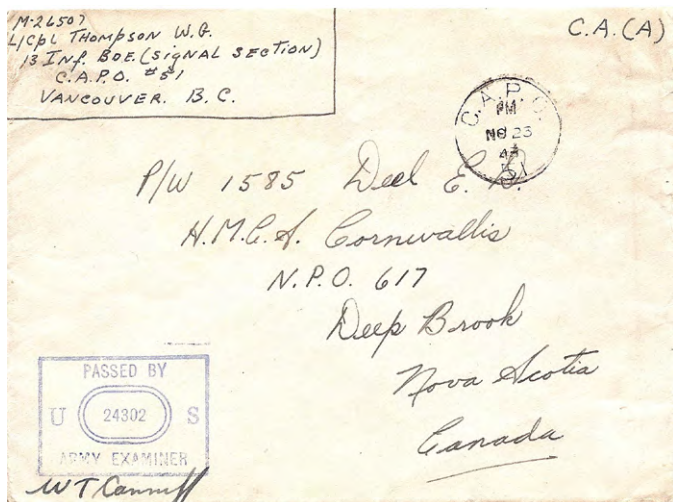 M-26507
L/Cpl THOMPSON W.G.
13 INF. BDE. (SIGNAL SECTION)
C.A.P.O. #51
VANCOUVER. B.C.
C.A.(A)
C.A.P.O.
PM
NO 23
43
51
P/W 1585 Deel E.
H.M.C.S. Cornwallis
N.P.O. 617
Deep Brook
Nova Scotia
Canada
PASSED BY
U 24302 S
ARMY EXAMINER
WT Canniff